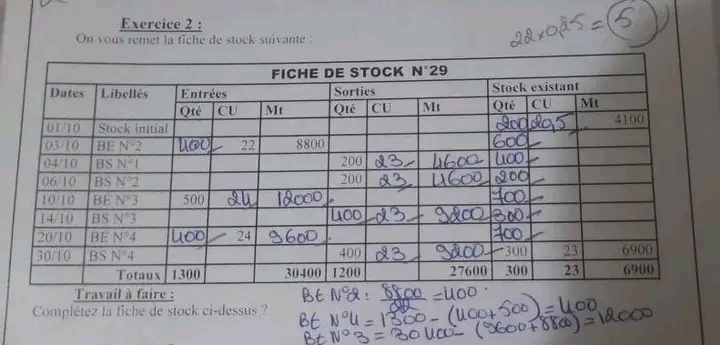 Exercice 2 :
22x0,25 = 5
On vous remet la fiche de stock suivante :
FICHE DE STOCK N°29
Dates Libellés Entrées Sorties Stock existant
Qté CU Mt Qté CU Mt Qté CU Mt
01/10 Stock initial 200 20,5 4100
03/10 BE N°2 400 22 8800 600
04/10 BS N°1 200 23 4600 400
06/10 BS N°2 200 23 4600 200
10/10 BE N°3 500 24 12000 700
14/10 BS N°3 400 23 9200 300
20/10 BE N°4 400 24 9600 700
30/10 BS N°4 400 23 9200 300 23 6900
Totaux 1300 30400 1200 27600 300 23 6900
Travail à faire :
BE N°2 : 8800/22 = 400
Complétez la fiche de stock ci-dessus ?
BE N°4 = 1300 - (400+500) = 400
BE N°3 = 30400 - (9600+8800) = 12000